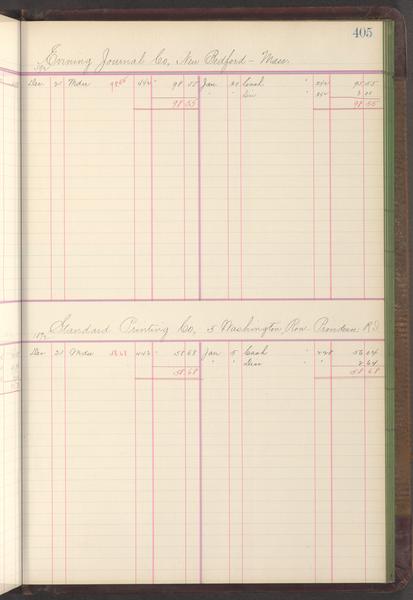 405
Evening Journal Co, New Bedford - Mass.
Dec 21 Mdse 98.55 442 " 98 55 Jan Cash " 95 55
" " Dis " 3 00
98 55 98 55
Standard Printing Co, 5 Washington Row - Providence R.I.
Dec 21 Mdse 58.68 442 " 58 68 Jan 5 Cash " 228 56 04
" " Disc " " 2 64
58 68 58 68